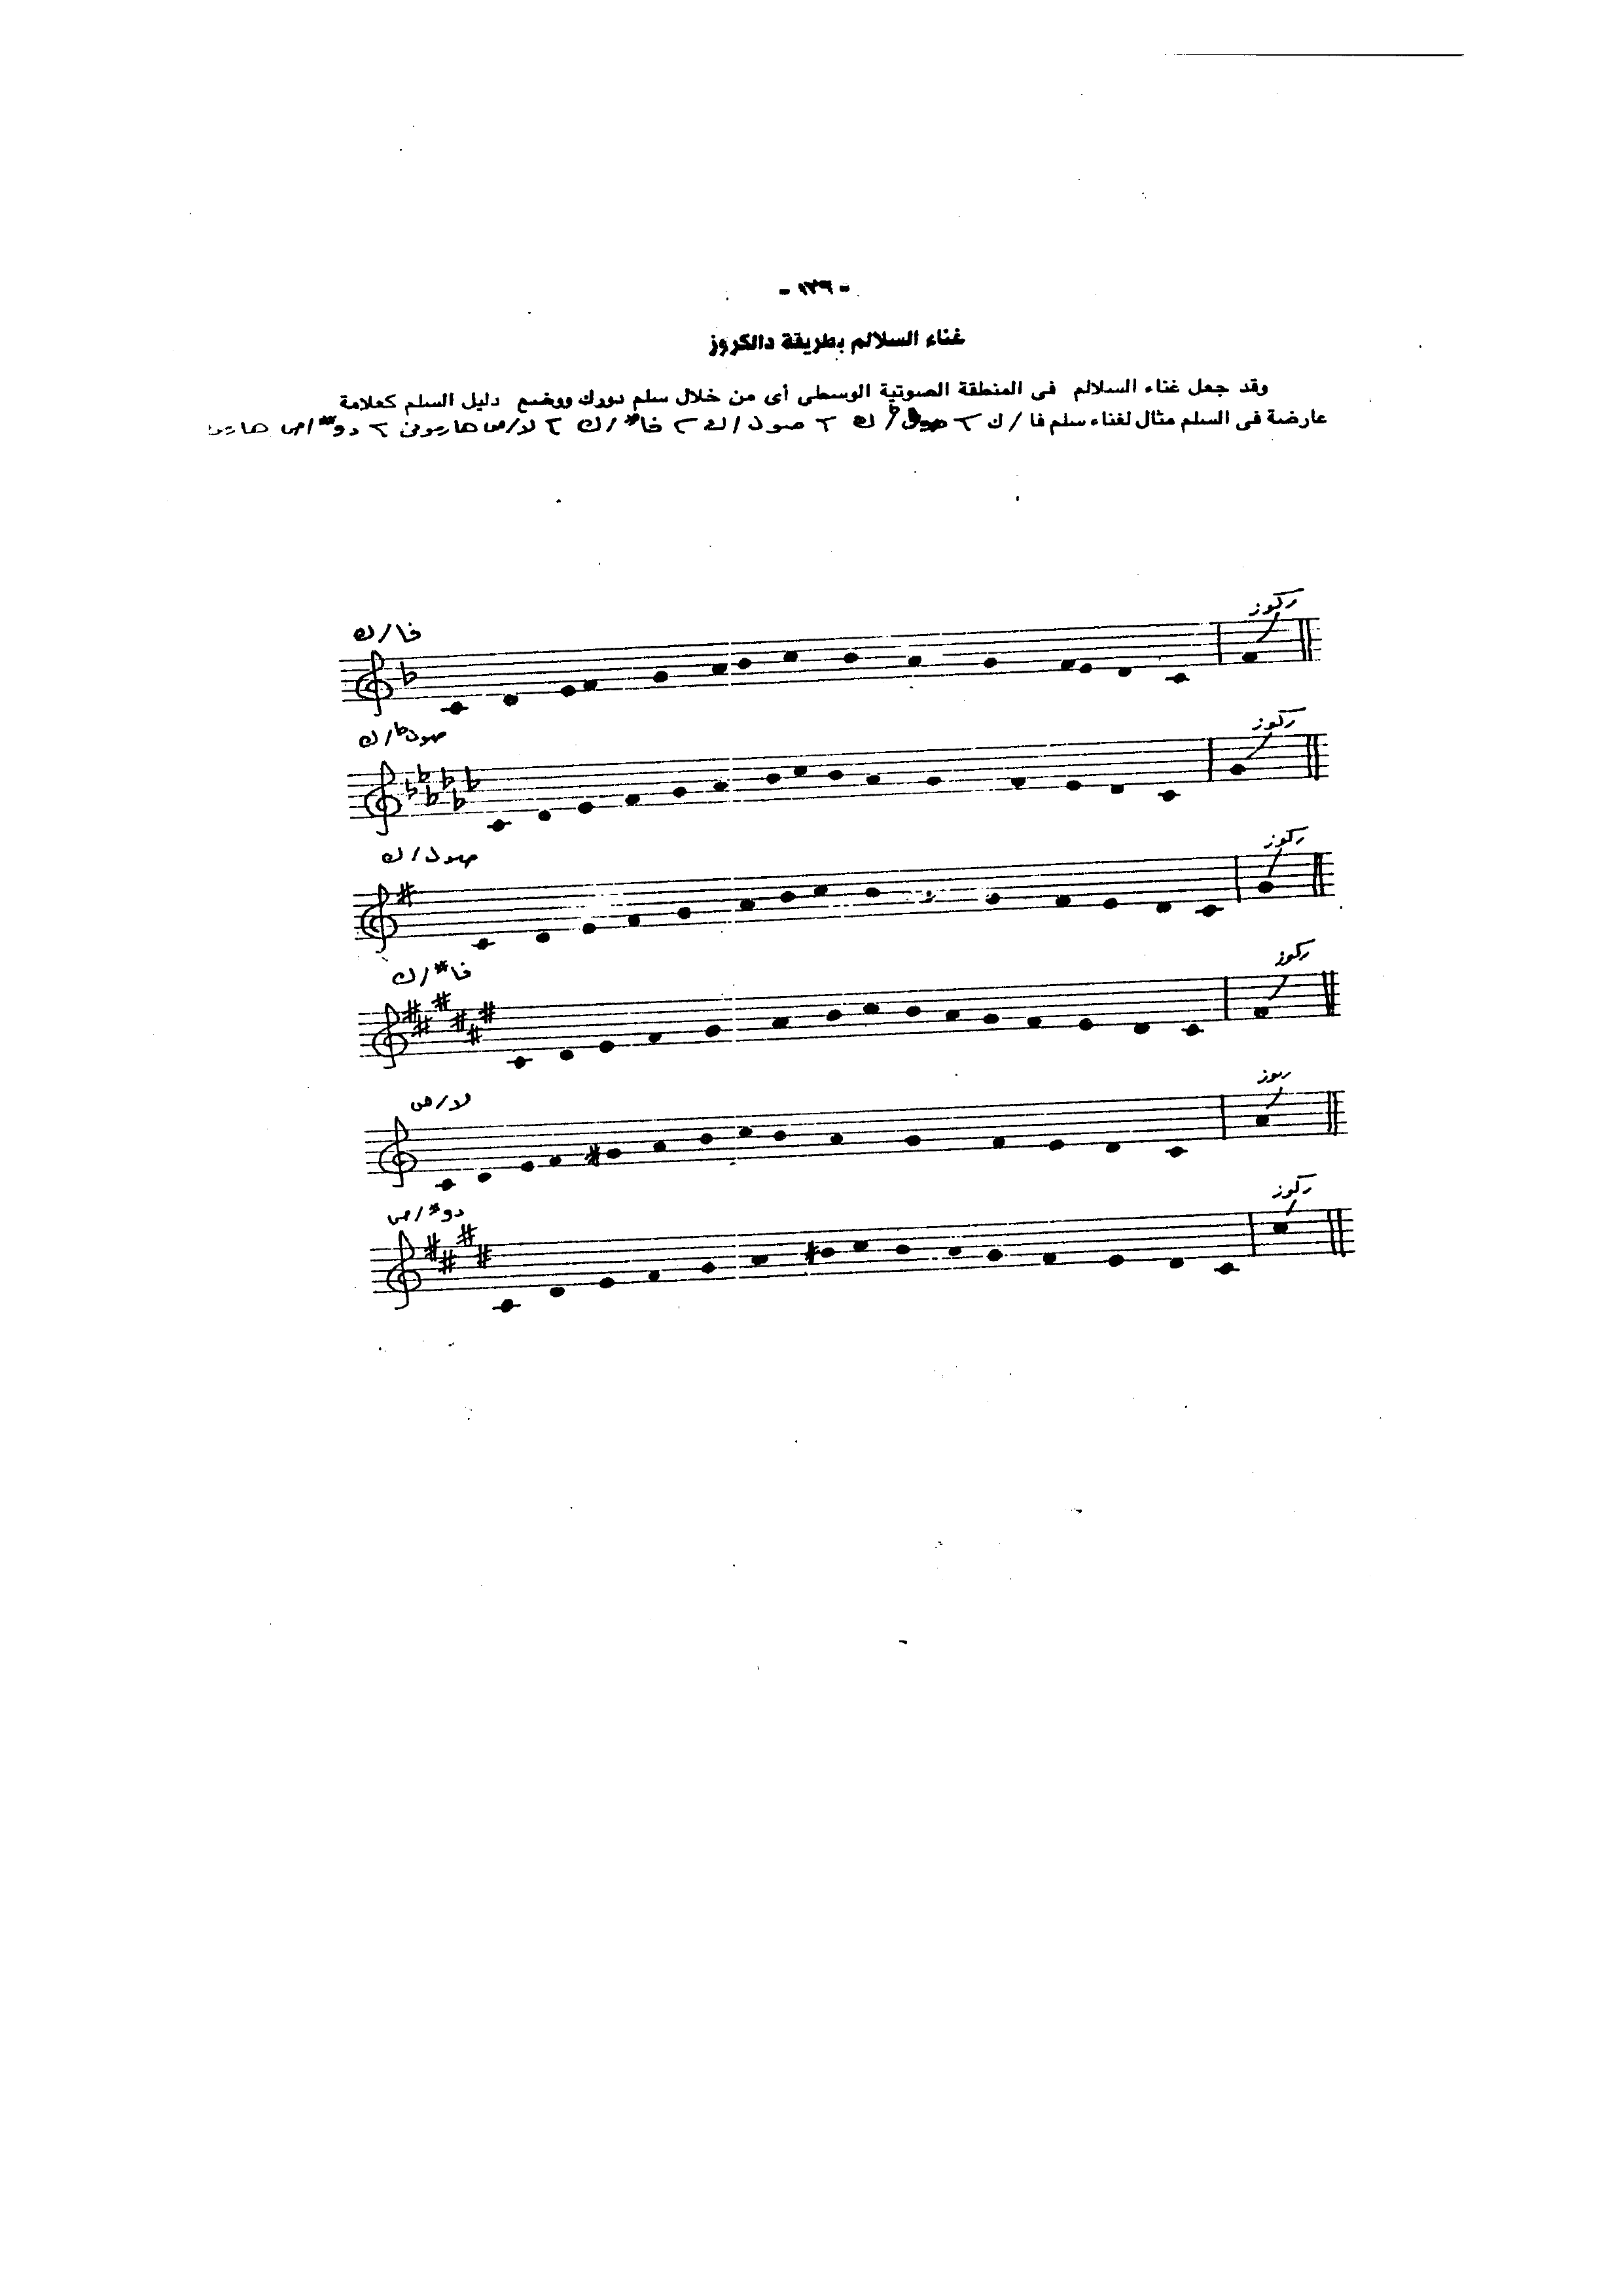 - ١٣٦ -
غناء السلالم بطريقة دالكروز
وقد جعل غناء السلالم فى المنطقة الصوتية الوسطى أى من خلال سلم دورك ووضع دليل السلم كعلامة
عارضة فى السلم مثال لغناء سلم فا / ك ، صول♭ / ك ، صول / ك ، فا# / ك ، لا / ص هارمونى ، دو# / ص
فا / ك
ركوز
صول♭ / ك
ركوز
صول / ك
ركوز
فا# / ك
ركوز
لا / ص
ركوز
دو# / ص
ركوز